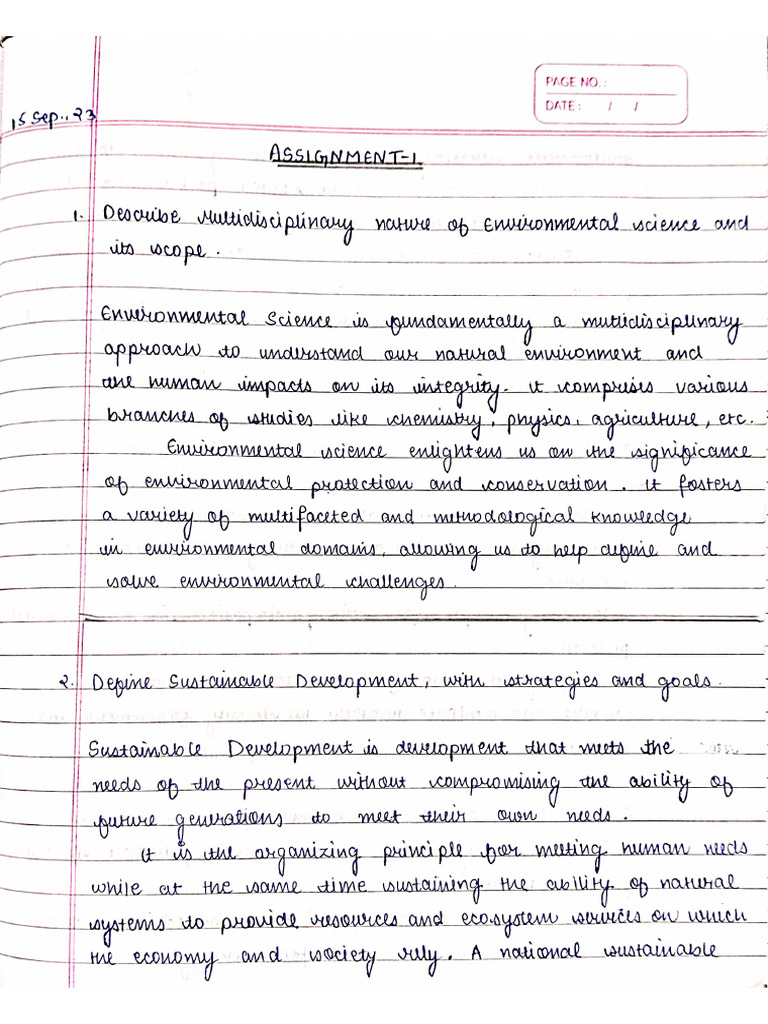 PAGE NO.:
DATE: / /
15 Sep., 23
ASSIGNMENT-1.
1. Describe Multidisciplinary nature of Environmental science and
its scope.
Environmental Science is fundamentally a multidisciplinary
approach to understand our natural environment and
the human impacts on its integrity. it comprises various
branches of studies like chemistry, physics, agriculture, etc.
Environmental science enlightens us on the significance
of environmental protection and conservation. It fosters
a variety of multifaceted and methodological knowledge
in environmental domains, allowing us to help define and
solve environmental challenges.
2. Define Sustainable Development, with strategies and goals.
Sustainable Development is development that meets the
needs of the present without compromising the ability of
future generations to meet their own needs.
It is the organizing principle for meeting human needs
while at the same time sustaining the ability of natural
systems to provide resources and ecosystem services on which
the economy and society rely. A national sustainable